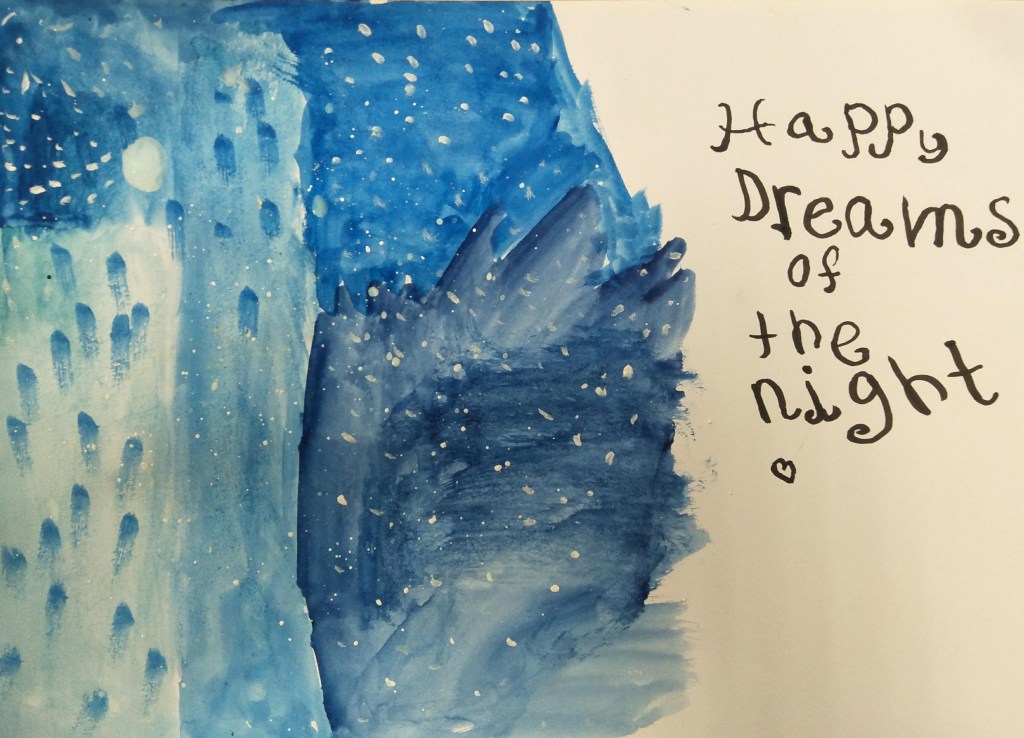 Happy
Dreams
of
the
night
♡